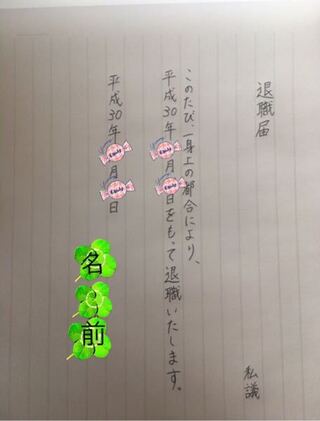 退職届
私議
このたび一身上の都合により、
平成30年 月 日をもって退職いたします。
平成30年 月 日
名前